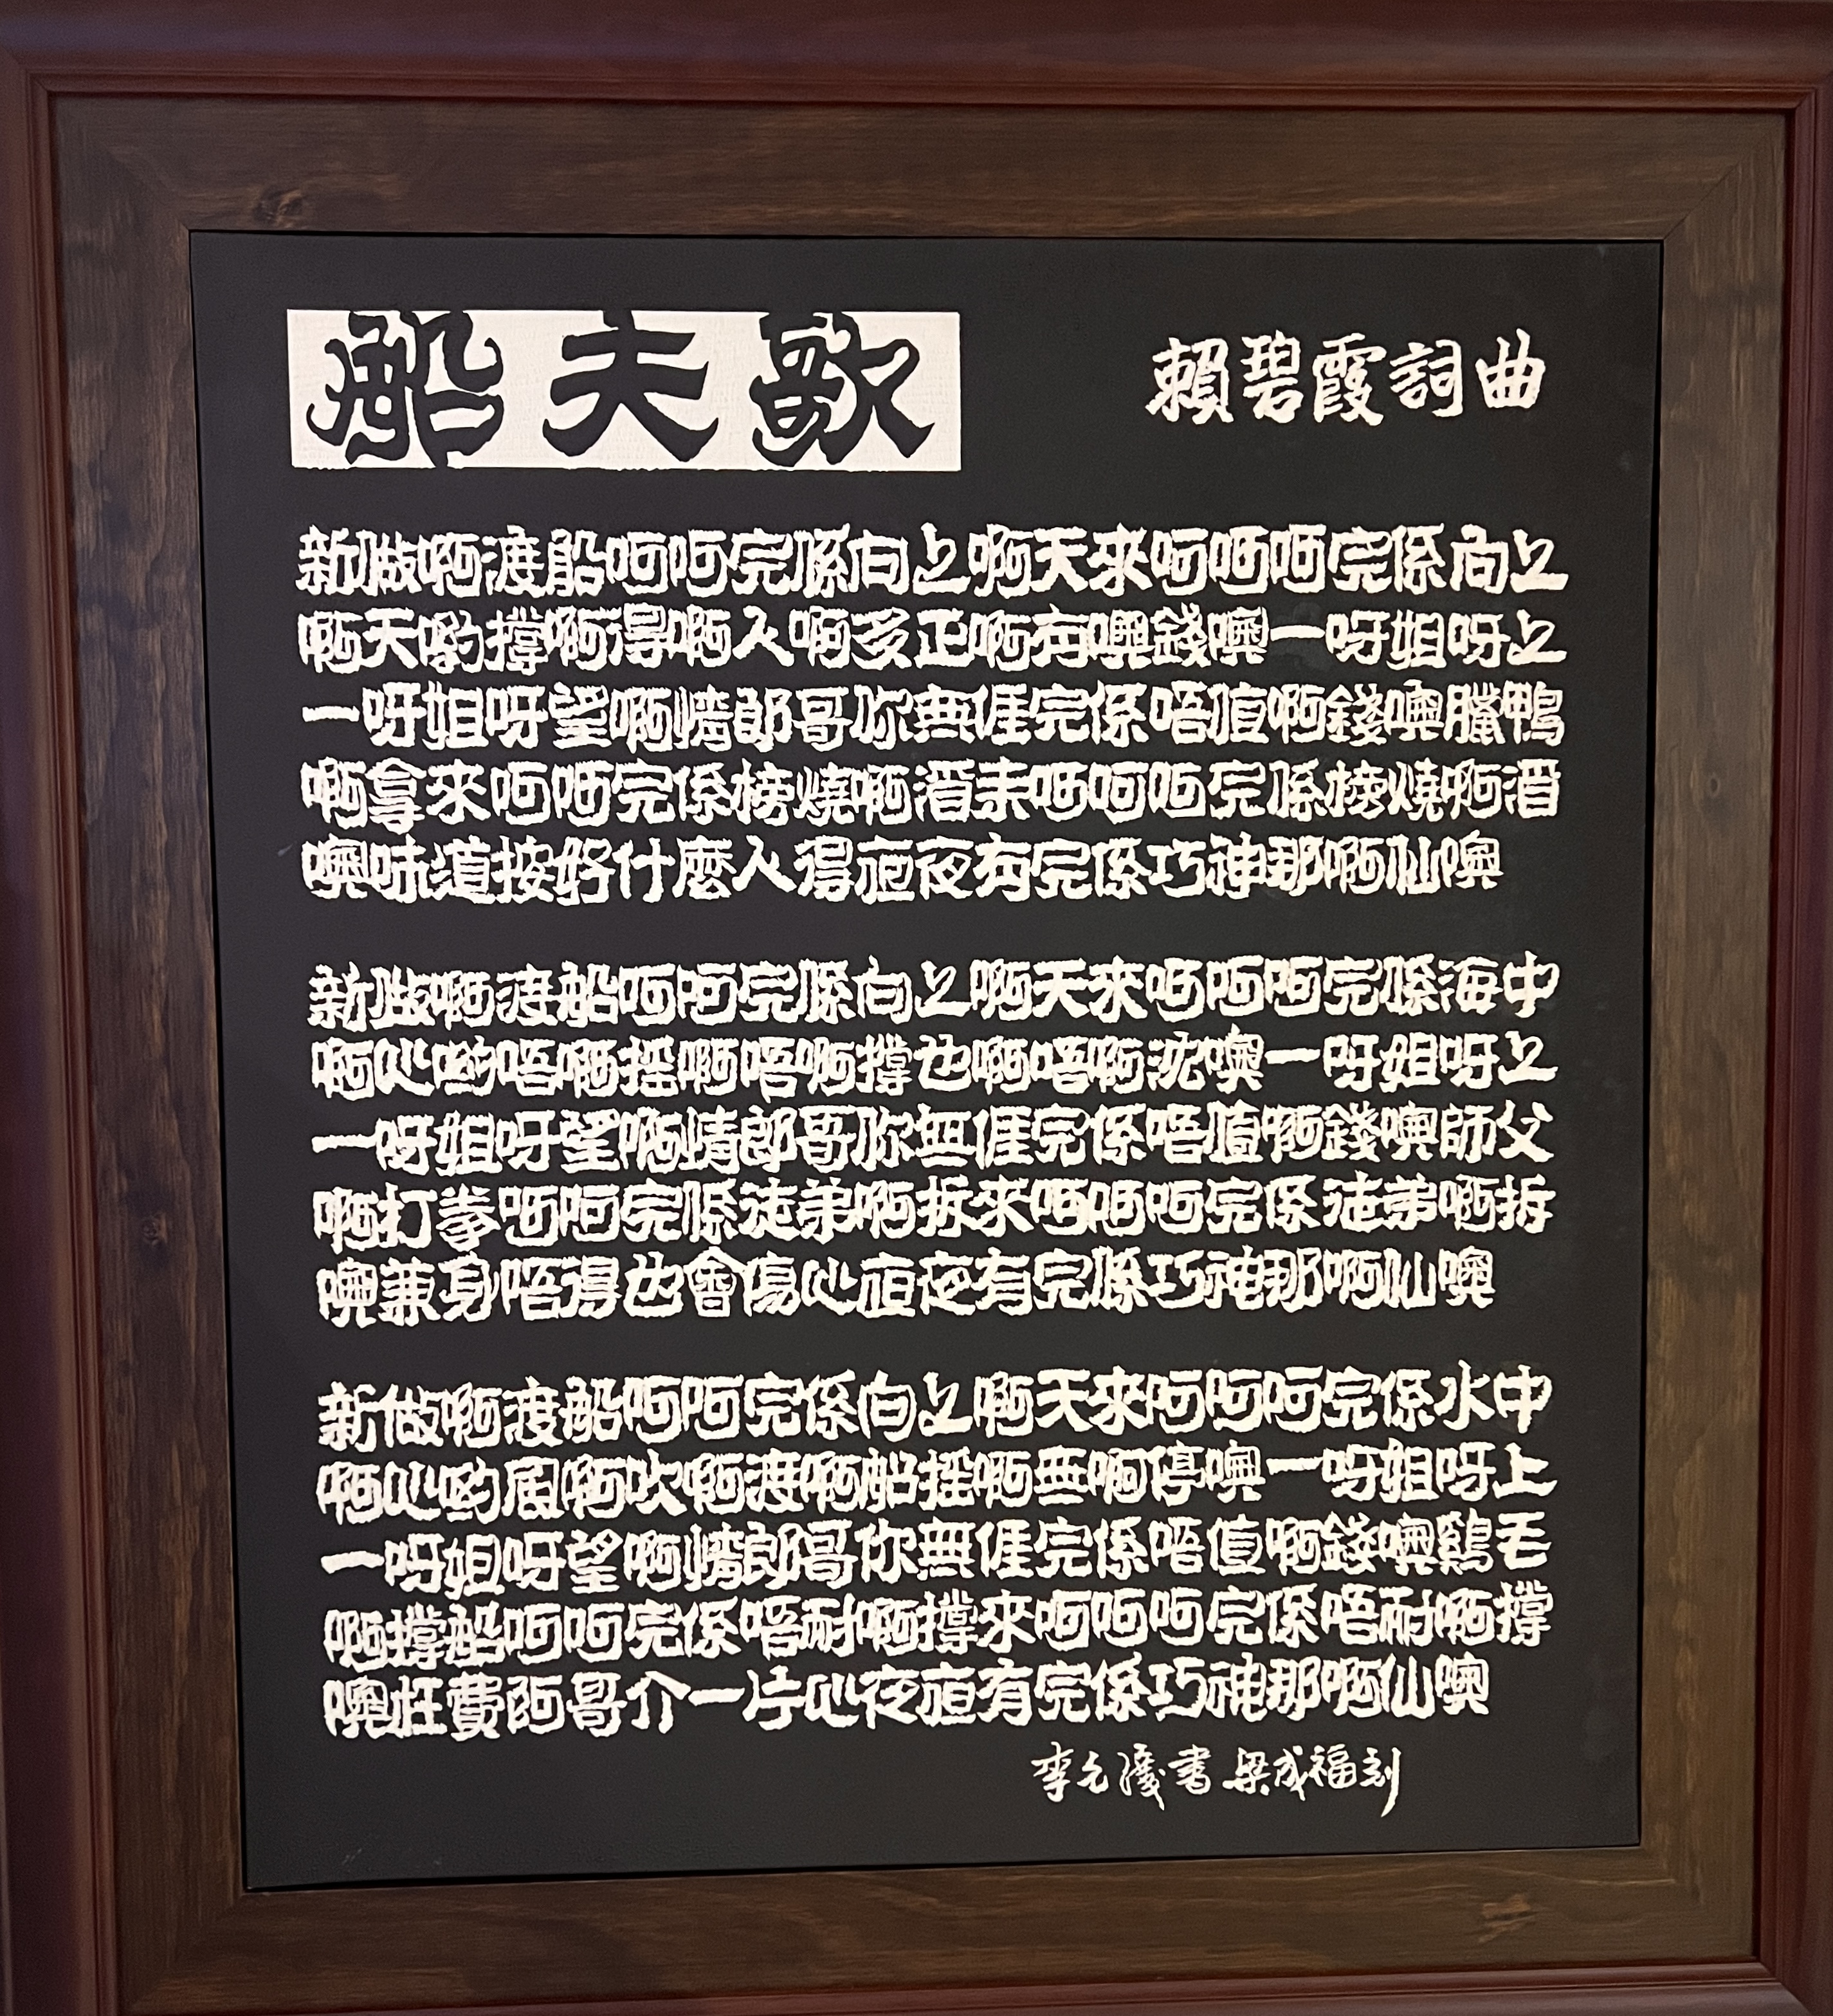 船夫歌
賴碧霞詞曲
新做啊渡船呵呵完係向上啊天來呵呵呵完係向上
啊天喲撐啊得啊人啊多正啊有噢錢噢一呀姐呀上
一呀姐呀望啊情郎哥你無𠊎完係唔值啊錢噢臘鴨
啊拿來呵呵完係榜燒啊酒來呵呵呵完係榜燒啊酒
噢味道按好什麼人得夜夜有完係巧神那啊仙噢
新做啊渡船呵呵完係向上啊天來呵呵呵完係海中
啊心喲唔啊搖啊唔啊撐也啊唔啊沈噢一呀姐呀上
一呀姐呀望啊情郎哥你無𠊎完係唔值啊錢噢師父
啊打拳呵呵完係徒弟啊拆來呵呵呵完係徒弟啊拆
噢兼身唔得也會傷心夜夜有完係巧神那啊仙噢
新做啊渡船呵呵完係向上啊天來呵呵呵完係水中
啊心喲風啊吹啊渡啊船搖啊無啊停噢一呀姐呀上
一呀姐呀望啊情郎哥你無𠊎完係唔值啊錢噢鷄毛
啊撐船呵呵完係唔耐啊撐來呵呵呵完係唔耐啊撐
噢枉費阿哥介一片心夜夜有完係巧神那啊仙噢
李 書 梁成福刻